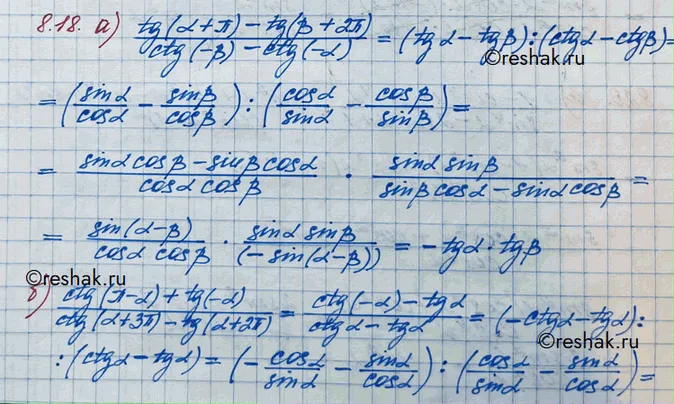 8.18. а) (tg(α+π) − tg(β+2π))/(ctg(−β) − ctg(−α)) = (tgα − tgβ):(ctgα − ctgβ)=
©reshak.ru
= (sinα/cosα − sinβ/cosβ) : (cosα/sinα − cosβ/sinβ) =
= (sinα cosβ − sinβ cosα)/(cosα cosβ) · (sinα sinβ)/(sinβ cosα − sinα cosβ) =
= sin(α−β)/(cosα cosβ) · (sinα sinβ)/(−sin(α−β)) = −tgα · tgβ
©reshak.ru
©reshak.ru
б) (ctg(π−α) + tg(−α))/(ctg(α+3π) − tg(α+2π)) = (ctg(−α) − tgα)/(ctgα − tgα) = (−ctgα − tgα):
:(ctgα − tgα) = (−cosα/sinα − sinα/cosα) : (cosα/sinα − sinα/cosα) =